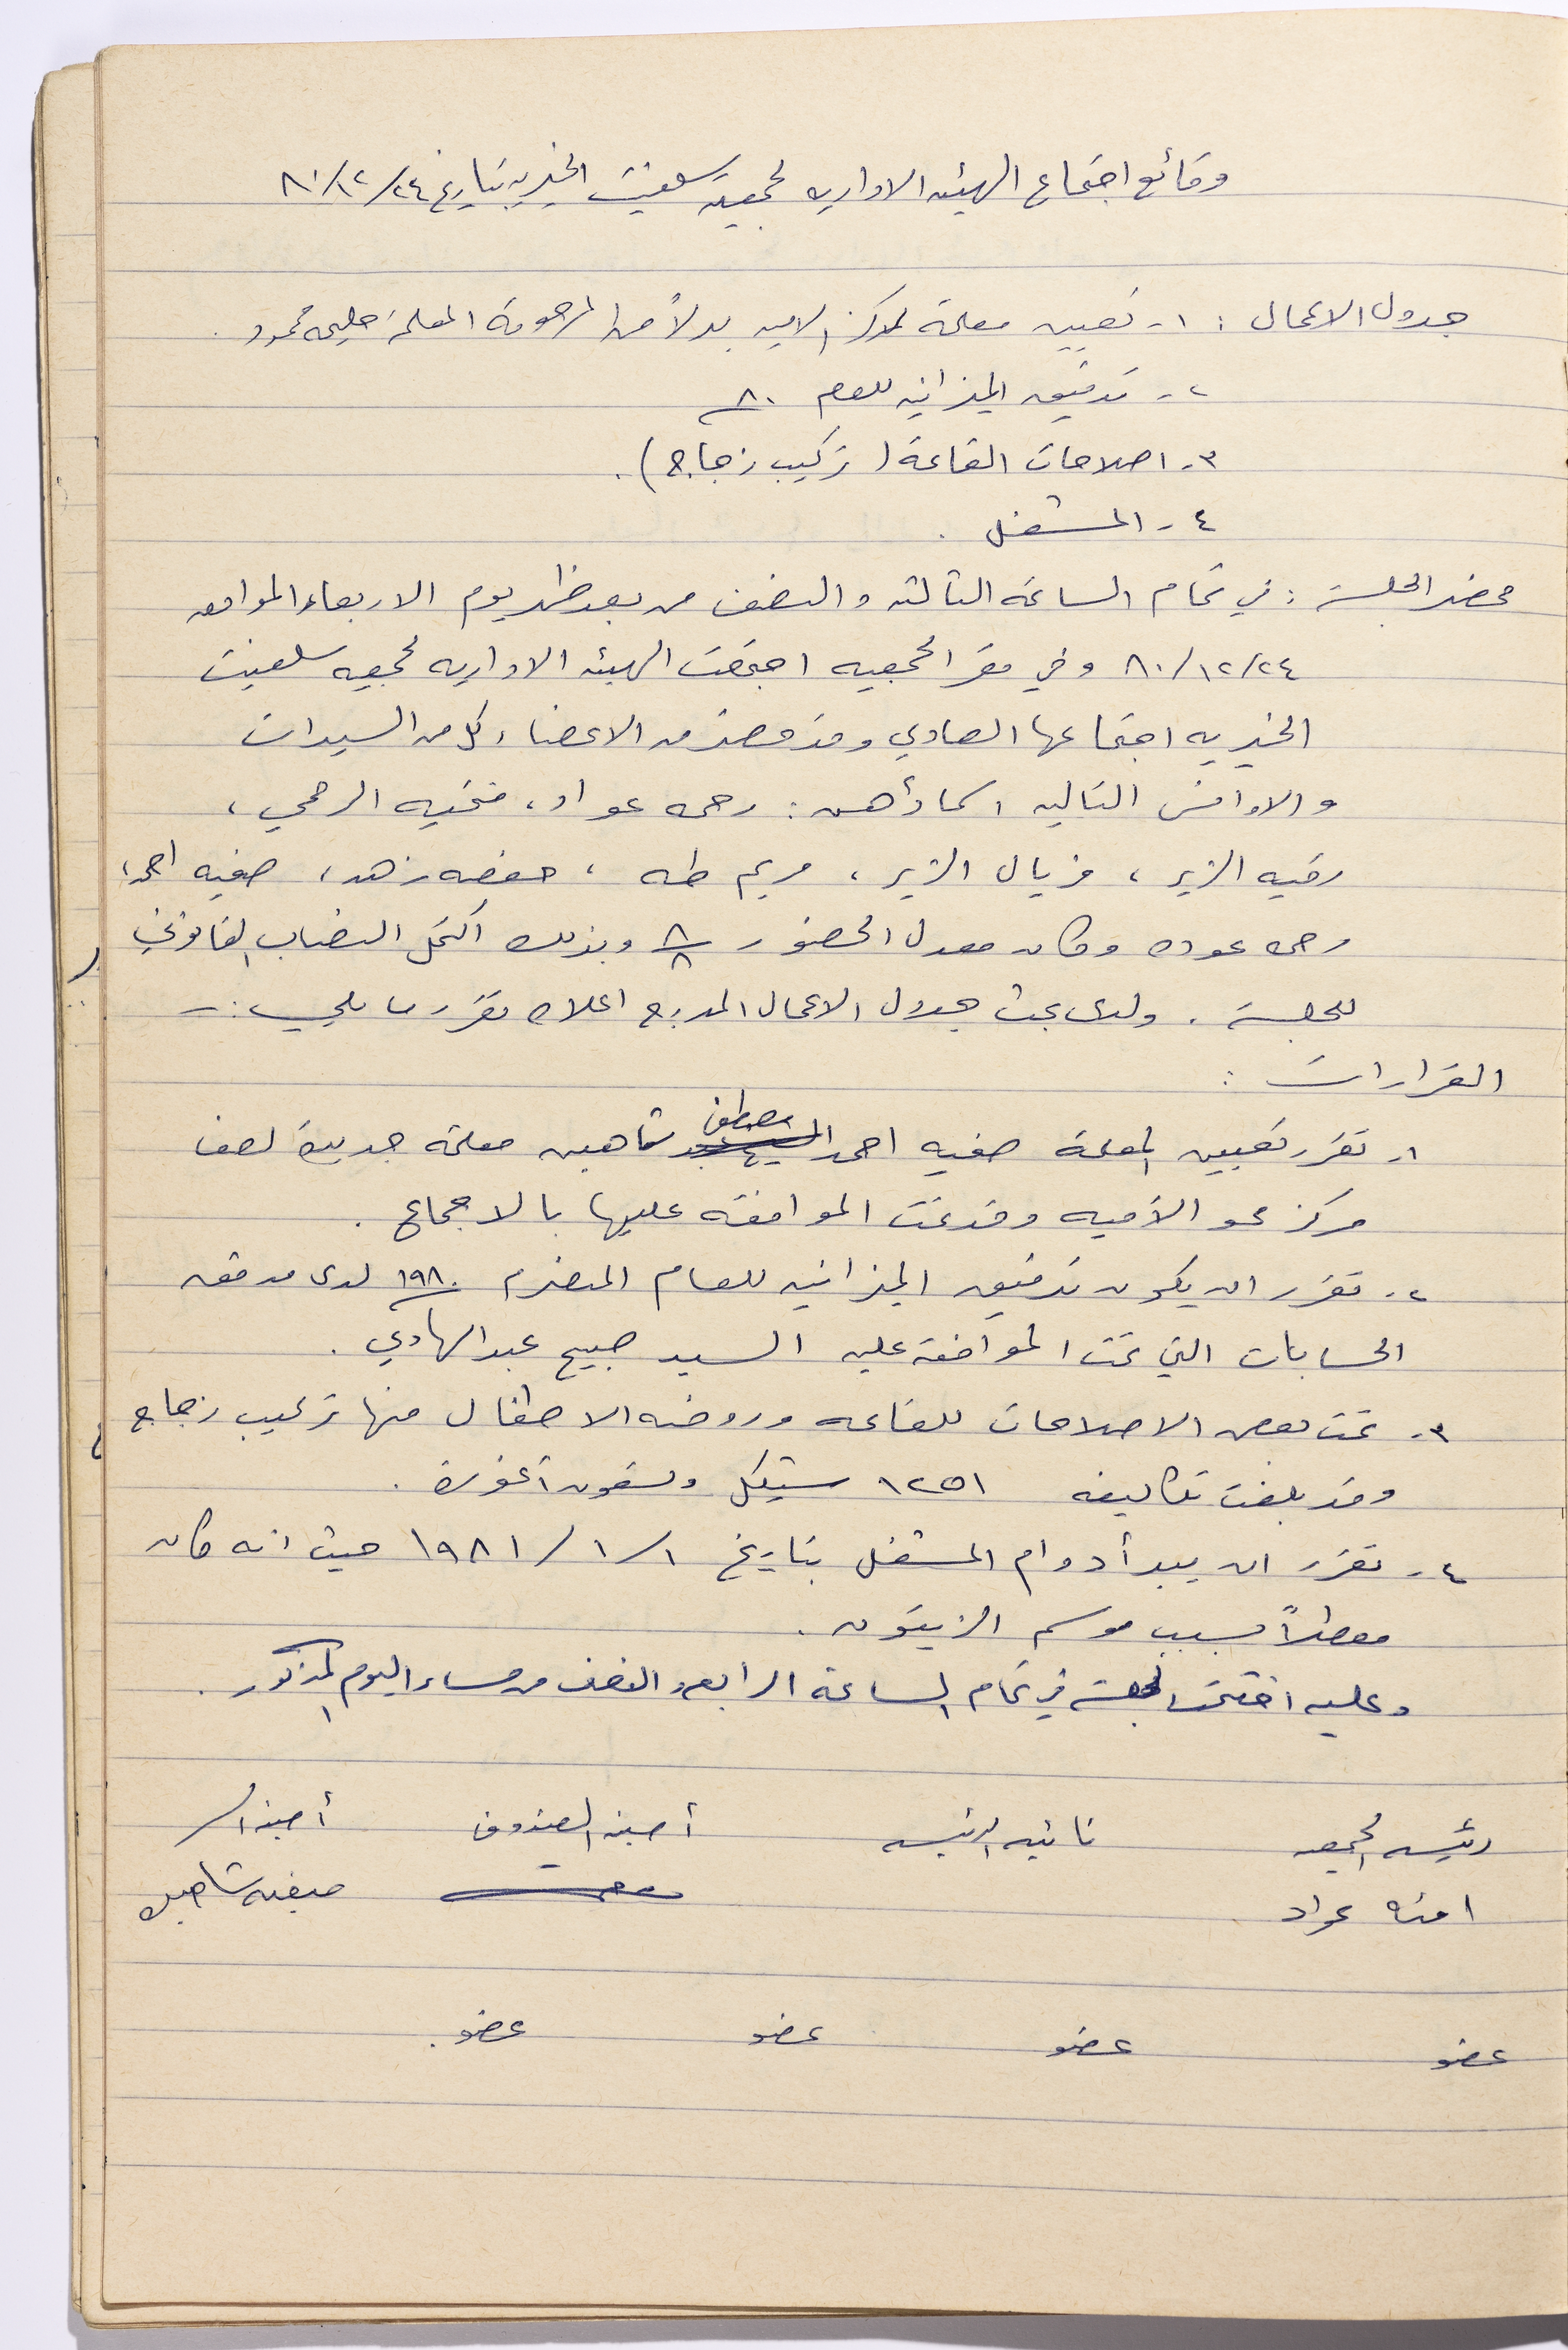 وقائع اجتماع الهيئه الاداريه لجمعية سلفيت الخيريه بتاريخ ٢٤/١٢/٨٠
جدول الاعمال : ١- تعيين معلمة لمركز الاميه بدلاً من المرحومة المعلمة حليمه محمود .
٢- تدقيق الميزانيه للعام ٨٠
٣- اصلاحات القاعة ( تركيب زجاج ) .
٤- المشغل .
محضر الجلسة : في تمام الساعة الثالثه والنصف من بعد ظهر يوم الاربعاء الموافق
٢٤/١٢/٨٠ وفي مقر الجمعيه اجتمعت الهيئه الاداريه لجمعيه سلفيت
الخيريه اجتماعها العادي وقد حضر من الاعضاء كل من السيدات
والاوانس التاليه اسماؤهن : رحمه عواد ، فتحيه الرحمي ،
رقيه الزير ، فريال الزير ، مريم طه ، حفصه زهد ، صفيه احمد ،
رحمه عوده وكان معدل الحضور ٨/٨ وبذلك اكتمل النصاب القانوني
للجلسة . ولدى بحث جدول الاعمال المدرج اعلاه تقرر ما يلي :-
القرارات :
١- تقرر تعيين المعلمة صفيه احمد مصطفى شاهين معلمة جديدة لصف
مركز محو الأميه وقد تمت الموافقه عليها بالاجماع .
٢- تقرر ان يكون تدقيق الميزانيه للعام المنصرم ١٩٨٠ لدى مدقق
الحسابات التي تمت الموافقة عليه السيد صبيح عبد الهادي .
٣- تمت بعض الاصلاحات للقاعه وروضه الاطفال منها تركيب زجاج
وقد بلغت تكاليفه ١٢٥١ شيكل وستون آغورة .
٤- تقرر ان يبدأ دوام المشغل بتاريخ ١/١/١٩٨١ حيث انه كان
معطلاً بسبب موسم الزيتون .
وعليه اختتمت الجلسة في تمام الساعة الرابعه والنصف من مساء اليوم المذكور .
رئيسه الجمعيه نائبه الرئيسه أمينه الصندوق أمينه السر
امنه عواد صفيه شاهين
عضو عضو عضو عضو .